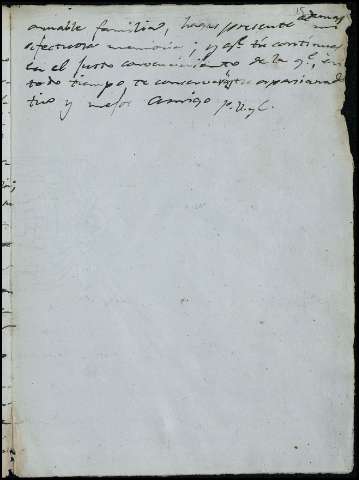 amable familia, hagas presente ademas
afectuosa memoria; y qe. tú continues
en el justo convencimiento de la qe., en
todo tiempo, te conserva tu apasionad
tivo y mejor amigo